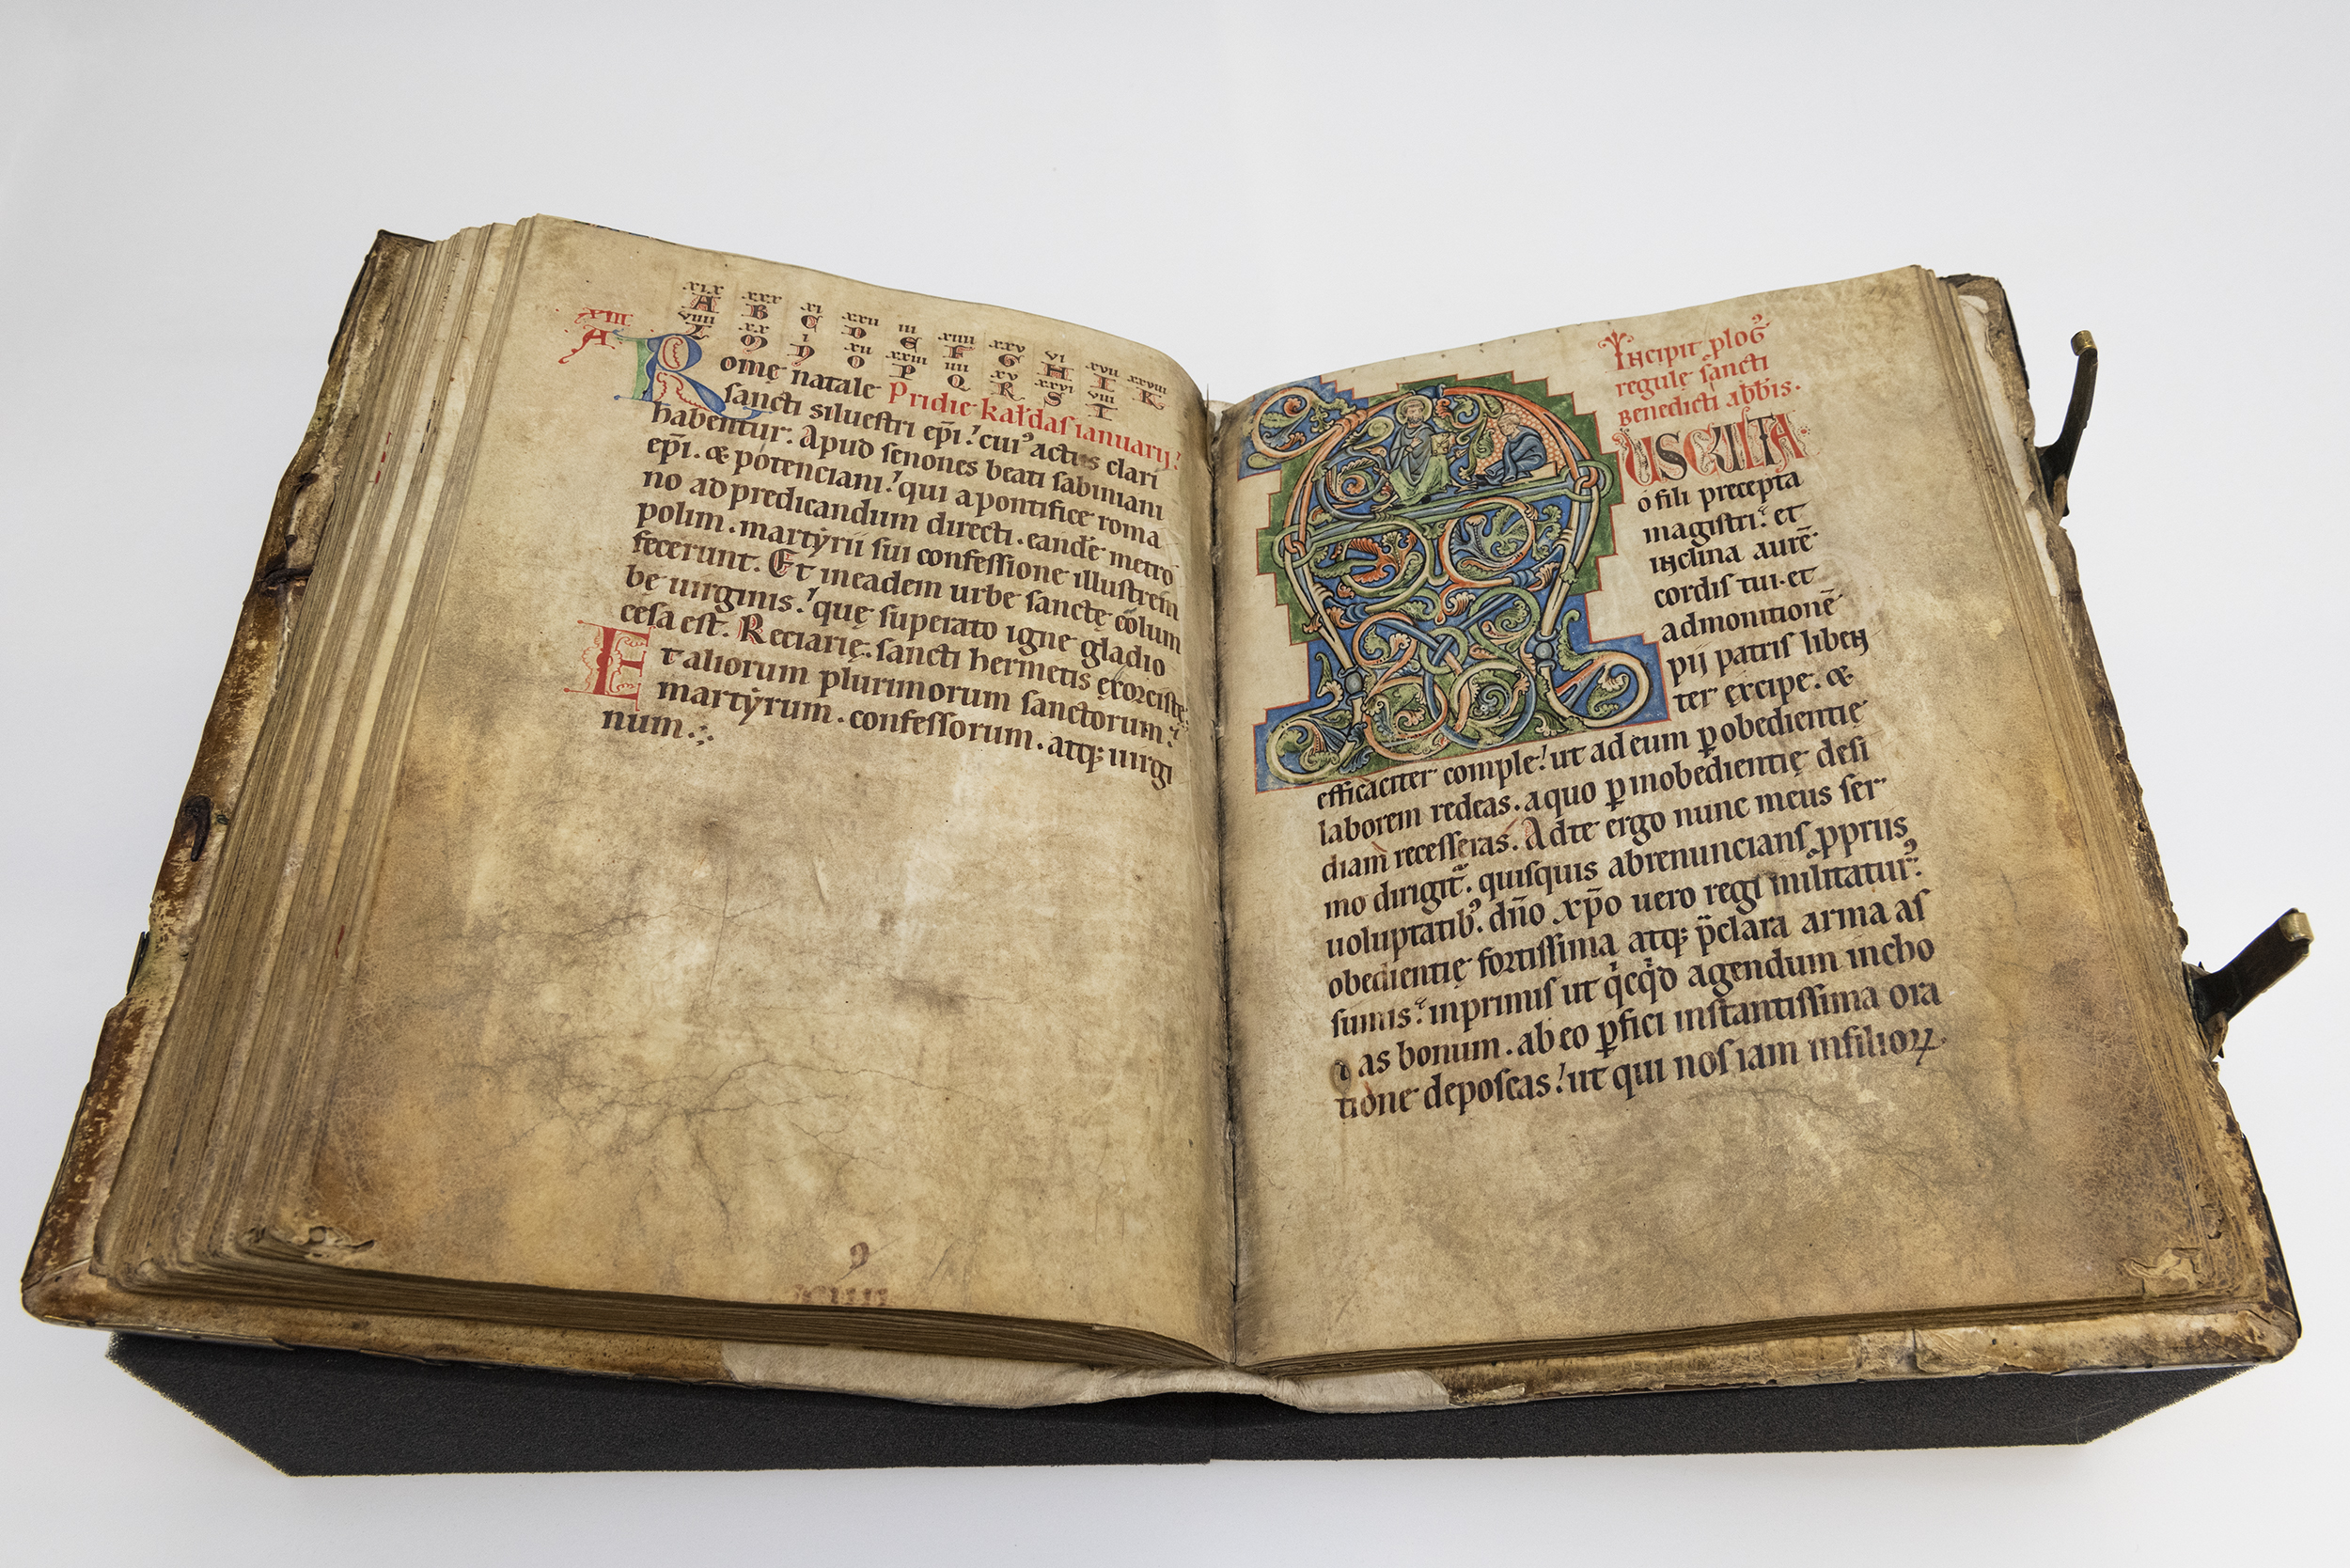 xix xxx xi xxii iii xiiii xxv vi xvii xxviii
A B C D E F G H I K
viiii xx i xii xxiii iiii xv xxvi viii
M N O P Q R S T
xiii
A
Romę natale Pridie kał'das ianuarij.
sancti siluestri ep̄i. cui' actus clari
habentur. Apud senones beati sabiniani
ep̄i. & potenciani. qui a pontifice roma
no ad predicandum directi. eandē metro
polim. martẏrii sui confessione illustrem
fecerunt. Et in eadem urbe sanctę colum
be uirginis. quę superato igne gladio
cesa est. Reciarię. sancti hermetis exorcistę.
Et aliorum plurimorum sanctorum.
martẏrum. confessorum. atq; uirgi
num.
Incipit plog̃
regulę sancti
Benedicti abb̄is.
AUSCULTA
o fili precepta
magistri. et
inclina aurē
cordis tui. et
admonitionē
pij patris liben
ter excipe. &
efficaciter comple. ut ad eum ꝑ obedientię
laborem redeas. a quo ꝑ inobedientię desi
diam recesseras. Ad te ergo nunc meus ser
mo dirigit̃. quisquis abrenuncians ꝓpriis
uoluptatib'. dn̄o xp̄o uero regi militatur'.
obedientię fortissima atq; p̄clara arma as
sumis. inprimis ut qͥcqͥd agendum incho
as bonum. ab eo ꝑfici instantissima ora
tione deposcas. ut qui nos iam in filioꝝ